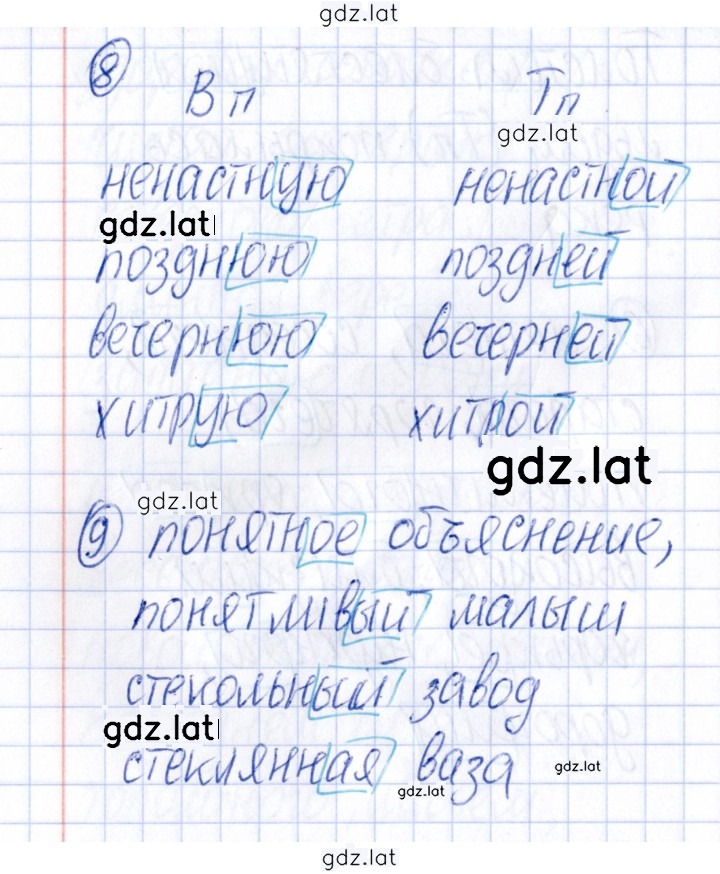 gdz.lat
8
Вп Тп
gdz.lat
ненастную ненастной
gdz.lat
позднюю поздней
вечернюю вечерней
хитрую хитрой
gdz.lat
gdz.lat
9 понятное объяснение,
понятливый малыш
стекольный завод
gdz.lat
стеклянная ваза
gdz.lat
gdz.lat
gdz.lat